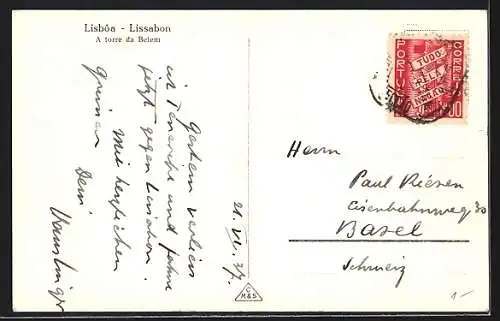 Lisbôa - Lissabon
A torre da Belem
21. VI. 37.
Gestern verliess
ich Teneriffe und fahre
jetzt gegen Lissabon.
Mit herzlichen
Grüssen
Dein
PORTUGAL
CORREIO
TUDO
PELA
NAÇÃO
Herrn
Paul Riesen
Eisenbahnweg 30
Basel
Schweiz
C
M&S
1-